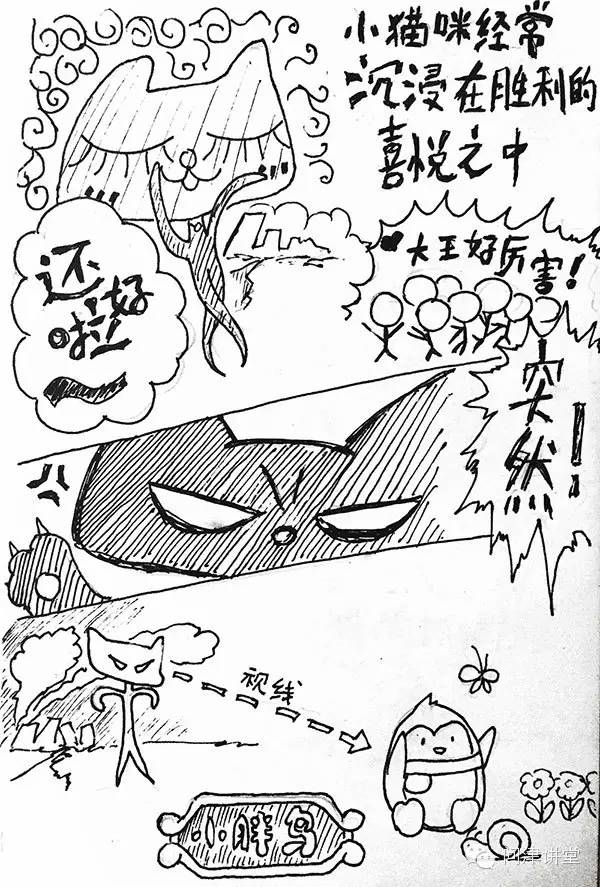 小猫咪经常
沉浸在胜利的
喜悦之中
大王好厉害!
还好啦~
突然!
视线
小胖鸟
讲堂